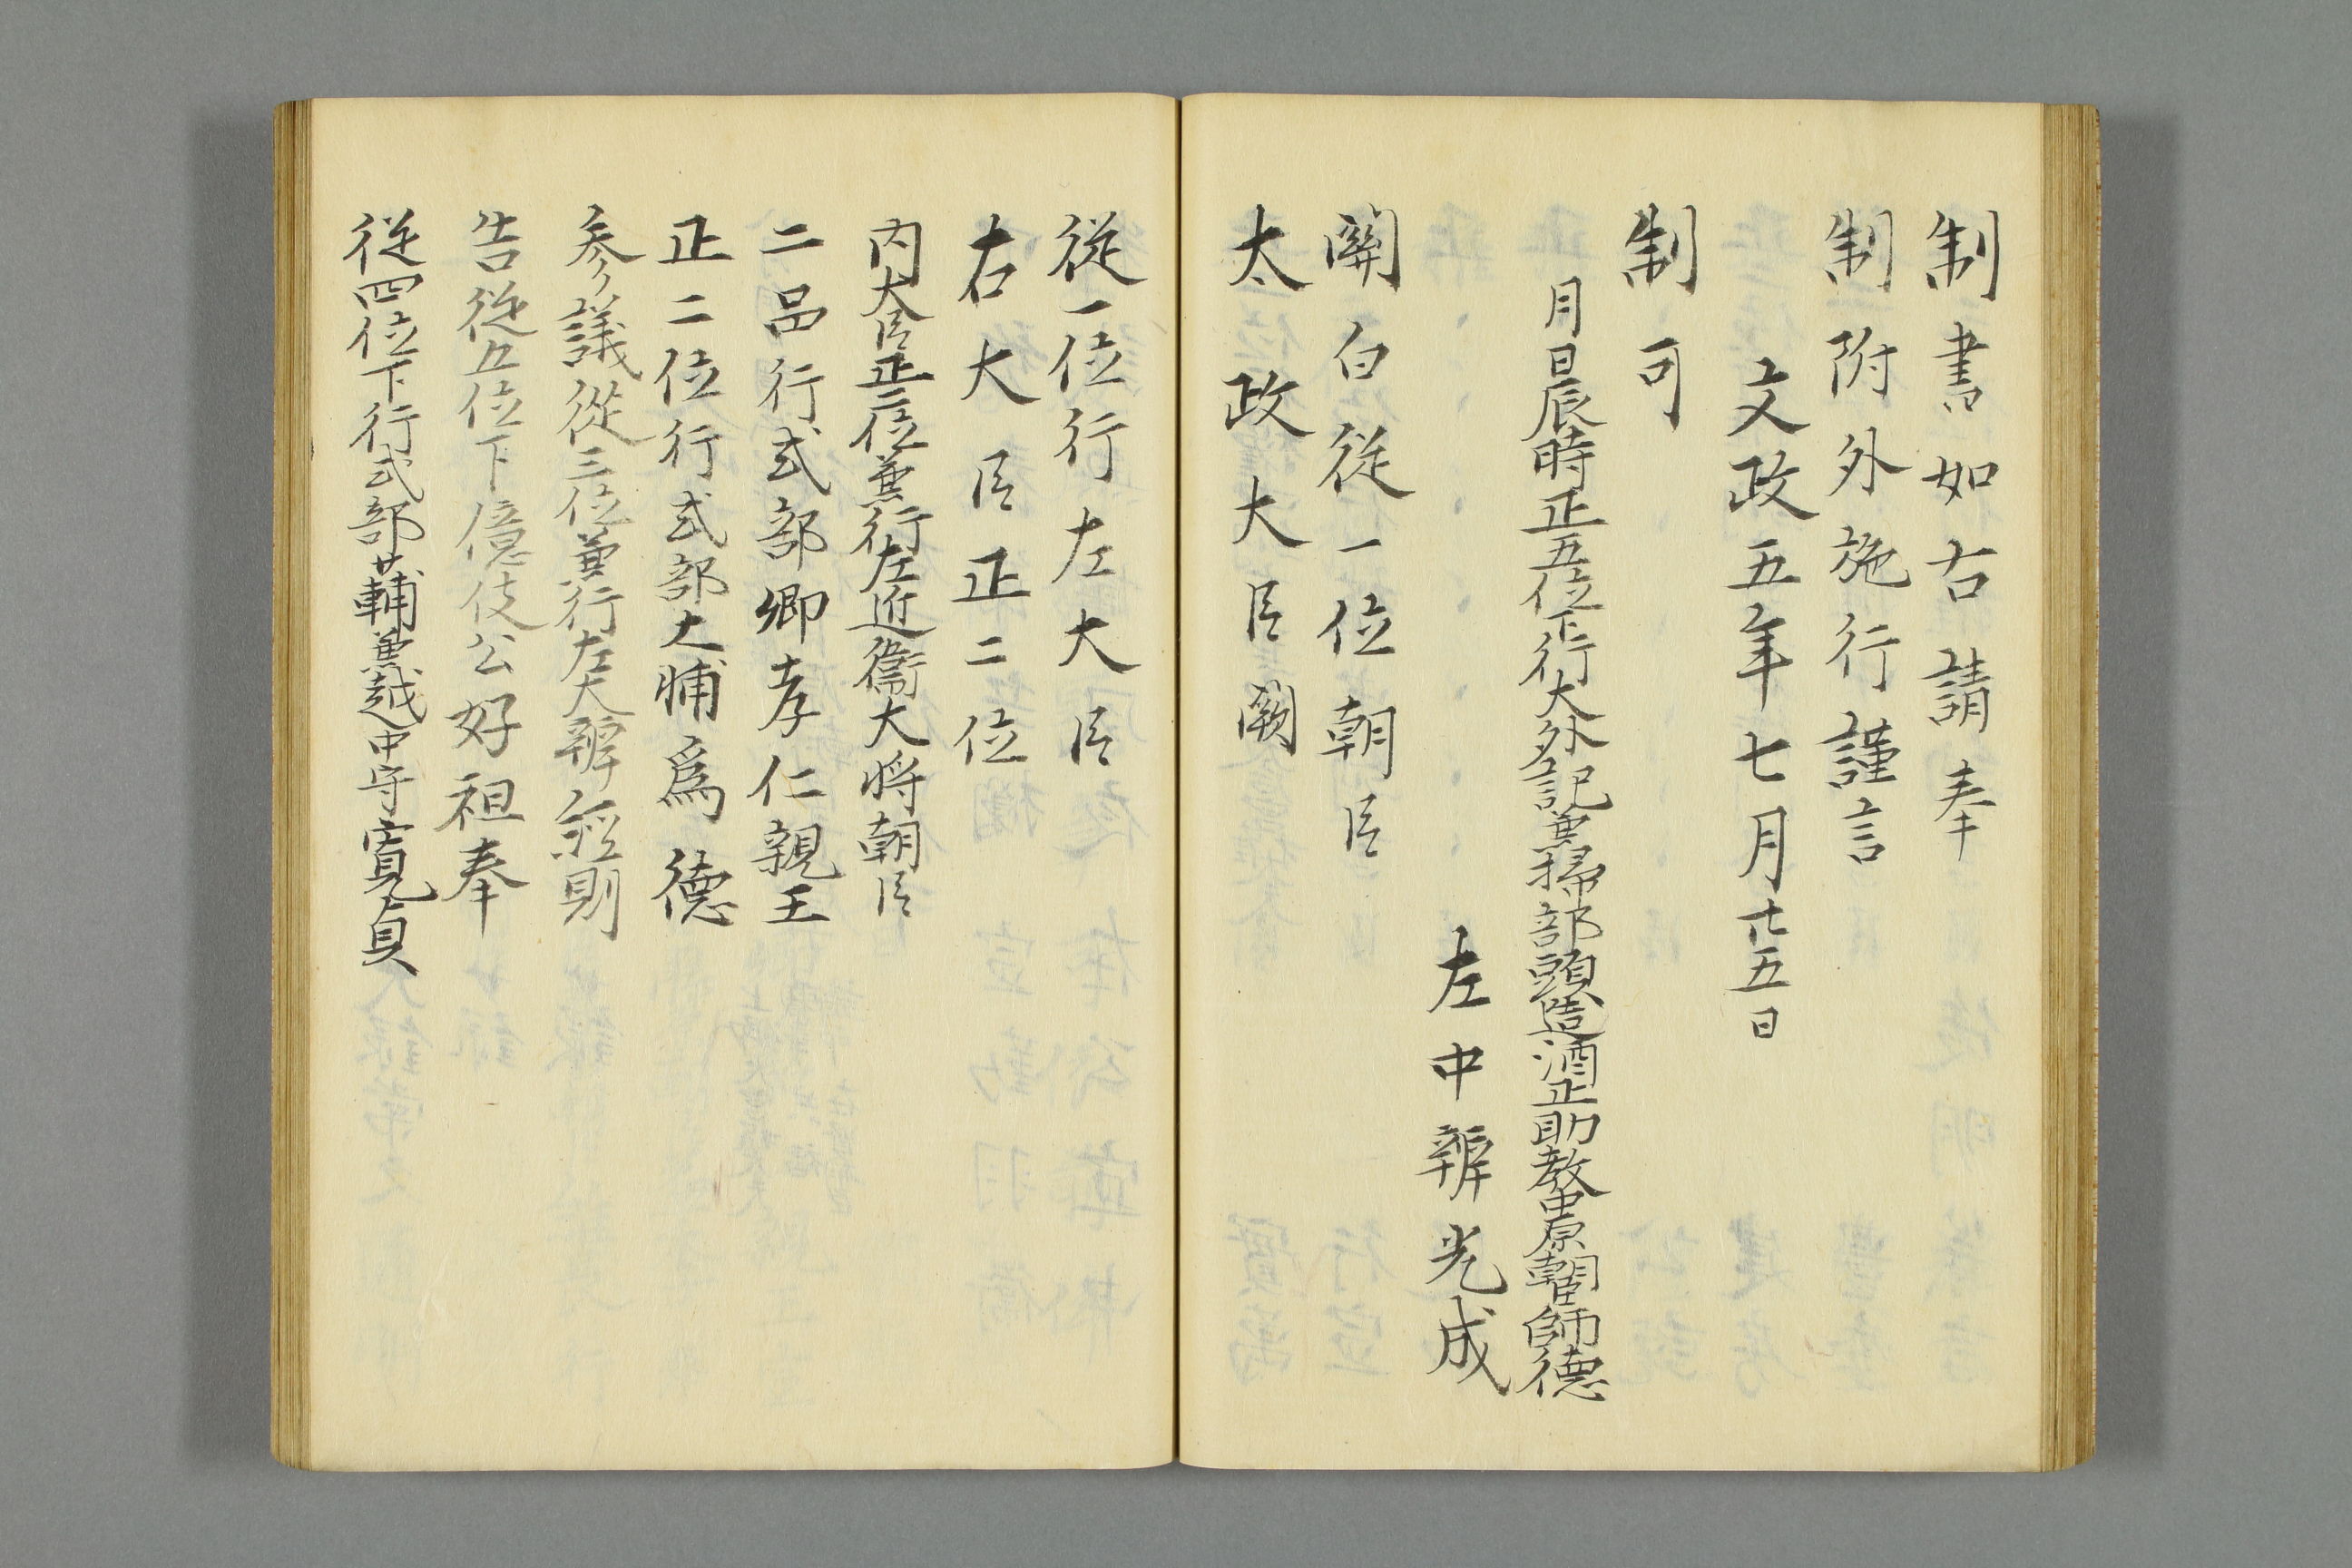 制書如右請奉
制附外施行謹言
文政五年七月廿五日
制可
月日辰時正五位下行大外記兼掃部頭造酒正助教中原朝臣師徳
左中辨光成
關白従一位朝臣
太政大臣闕
従一位行左大臣
右大臣正二位
内大臣正二位兼行左近衞大将朝臣
二品行式部卿孝仁親王
正二位行式部大輔爲徳
参議従三位兼行左大辨経則
告従五位下億伎公好祖奉
従四位下行式部少輔兼越中守寛貞